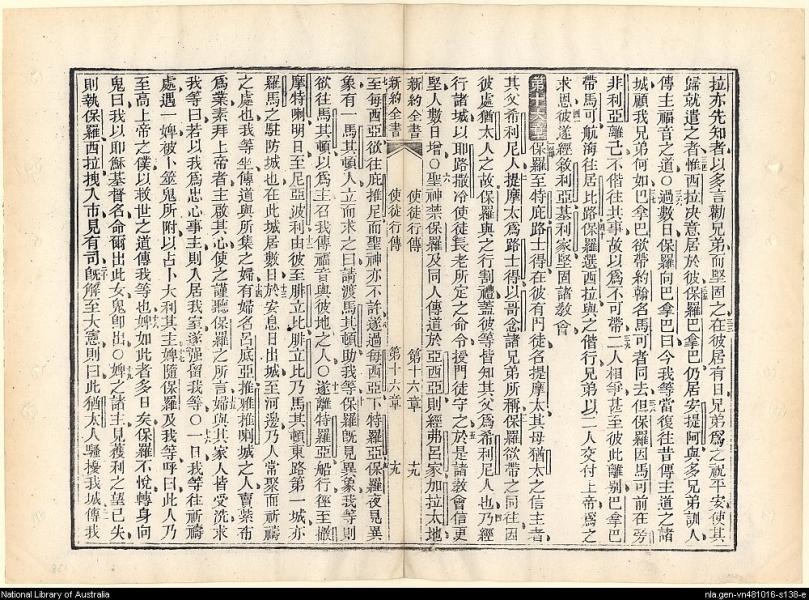 拉亦先知者以多言勸兄弟而堅固之在彼居有日兄弟爲之祝平安使其
歸就遣之者惟西拉決意居於彼保羅巴拿巴仍居安提阿與多兄弟訓人
傳主福音之道〇過數日保羅向巴拿巴曰今我等當復往昔傳主道之諸
城顧我兄弟何如巴拿巴欲帶約翰名馬可者同去但保羅因馬可前在旁
非利亞離己不偕往其事故以爲不可帶二人相爭甚至彼此離別巴拿巴
帶馬可航海往居比路保羅選西拉與之偕行兄弟以二人交付上帝爲之
求恩彼遂經敘利亞基利家堅固諸敎會
第十六章保羅至特庇路士得在彼有門徒名提摩太其母猶太之信主者
其父希利尼人提摩太爲路士得以哥念諸兄弟所稱保羅欲帶之同往因
彼處猶太人之故保羅與之行割禮蓋彼等皆知其父爲希利尼人也乃經
行諸城以耶路撒冷使徒長老所定之命令授門徒守之於是諸敎會信更
堅人數日增〇聖神禁保羅及同人傳道於亞西亞則經弗呂家加拉太地
新約全書 使徒行傳 第十六章 十九
新約全書 使徒行傳 第十六章 十九
至每西亞欲往庇推尼而聖神亦不許遂過每西亞下特羅亞保羅夜見異
象有一馬其頓人立而求之曰請渡馬其頓助我等保羅旣見異象我等則
欲往馬其頓以爲主召我傳福音與彼地之人〇遂離特羅亞船行徑至撒
摩特喇明日至尼亞波利由彼至腓立比此腓立比乃馬其頓東路第一城亦
羅馬之駐防城也在此城居數日於安息日出城至河邊乃人常聚而祈禱
之處也我等坐傳道與所集之婦有婦名呂底亞推雅推喇城之人賣紫布
爲業素拜上帝者主啟其心使之謹聽保羅之所言婦與其家人皆受洗求
我等曰若以我爲忠心事主則入居我室遂强留我等〇一日我等往祈禱
處遇一婢被卜筮鬼所附以占卜大利其主婢隨保羅及我等呼曰此人乃
至高上帝之僕以救世之道傳我等也婢如此者多日矣保羅不悅轉身向
鬼曰我以耶穌基督名命爾出此女鬼卽出〇婢之諸主見獲利之望已失
則執保羅西拉拽入市見有司旣解至大憲則曰此猶太人騷擾我城傳我
National Library of Australia
nla.gen-vn481016-s138-e